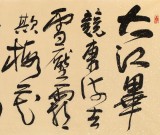 大江畢
竟東流去
雪壓霜
欺梅花